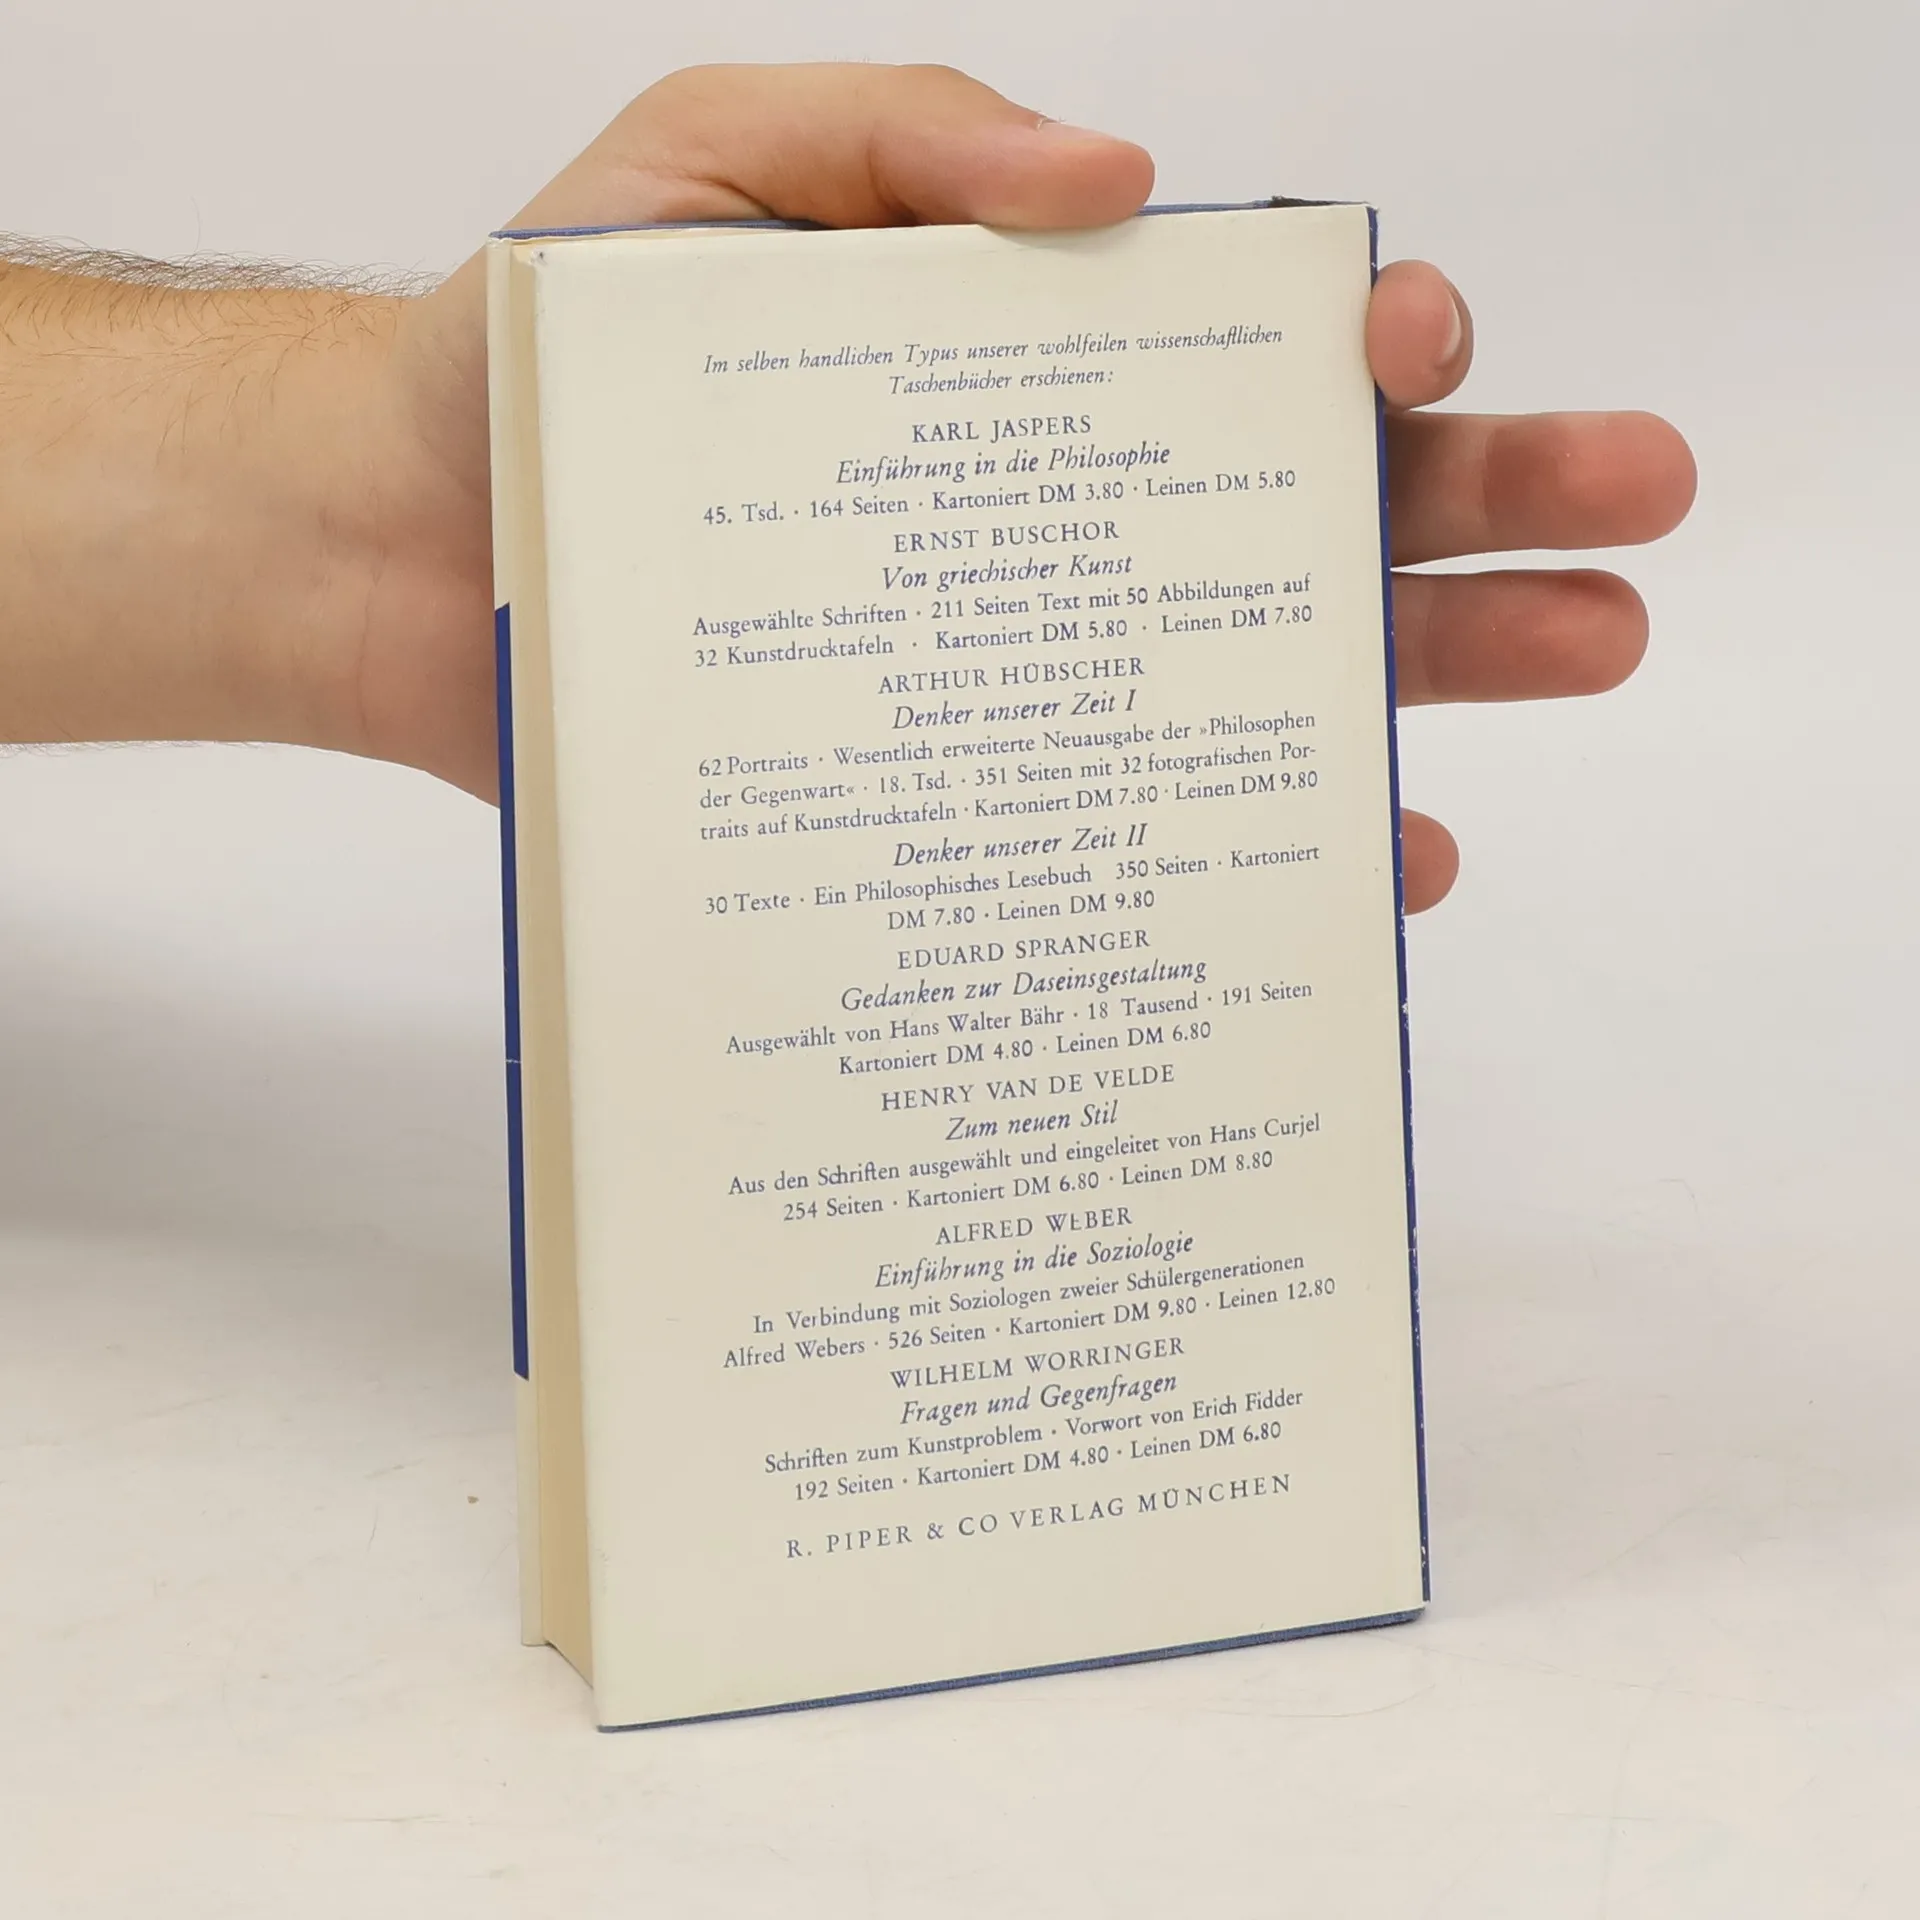 Im selben handlichen Typus unserer wohlfeilen wissenschaftlichen
Taschenbücher erschienen:
KARL JASPERS
Einführung in die Philosophie
45. Tsd. · 164 Seiten · Kartoniert DM 3.80 · Leinen DM 5.80
ERNST BUSCHOR
Von griechischer Kunst
Ausgewählte Schriften · 211 Seiten Text mit 50 Abbildungen auf
32 Kunstdrucktafeln · Kartoniert DM 5.80 · Leinen DM 7.80
ARTHUR HÜBSCHER
Denker unserer Zeit I
62 Portraits · Wesentlich erweiterte Neuausgabe der »Philosophen
der Gegenwart« · 18. Tsd. · 351 Seiten mit 32 fotografischen Por-
traits auf Kunstdrucktafeln · Kartoniert DM 7.80 · Leinen DM 9.80
Denker unserer Zeit II
30 Texte · Ein Philosophisches Lesebuch 350 Seiten · Kartoniert
DM 7.80 · Leinen DM 9.80
EDUARD SPRANGER
Gedanken zur Daseinsgestaltung
Ausgewählt von Hans Walter Bähr · 18 Tausend · 191 Seiten
Kartoniert DM 4.80 · Leinen DM 6.80
HENRY VAN DE VELDE
Zum neuen Stil
Aus den Schriften ausgewählt und eingeleitet von Hans Curjel
254 Seiten · Kartoniert DM 6.80 · Leinen DM 8.80
ALFRED WEBER
Einführung in die Soziologie
In Verbindung mit Soziologen zweier Schülergenerationen
Alfred Webers · 526 Seiten · Kartoniert DM 9.80 · Leinen 12.80
WILHELM WORRINGER
Fragen und Gegenfragen
Schriften zum Kunstproblem · Vorwort von Erich Fidder
192 Seiten · Kartoniert DM 4.80 · Leinen DM 6.80
R. PIPER & CO VERLAG MÜNCHEN